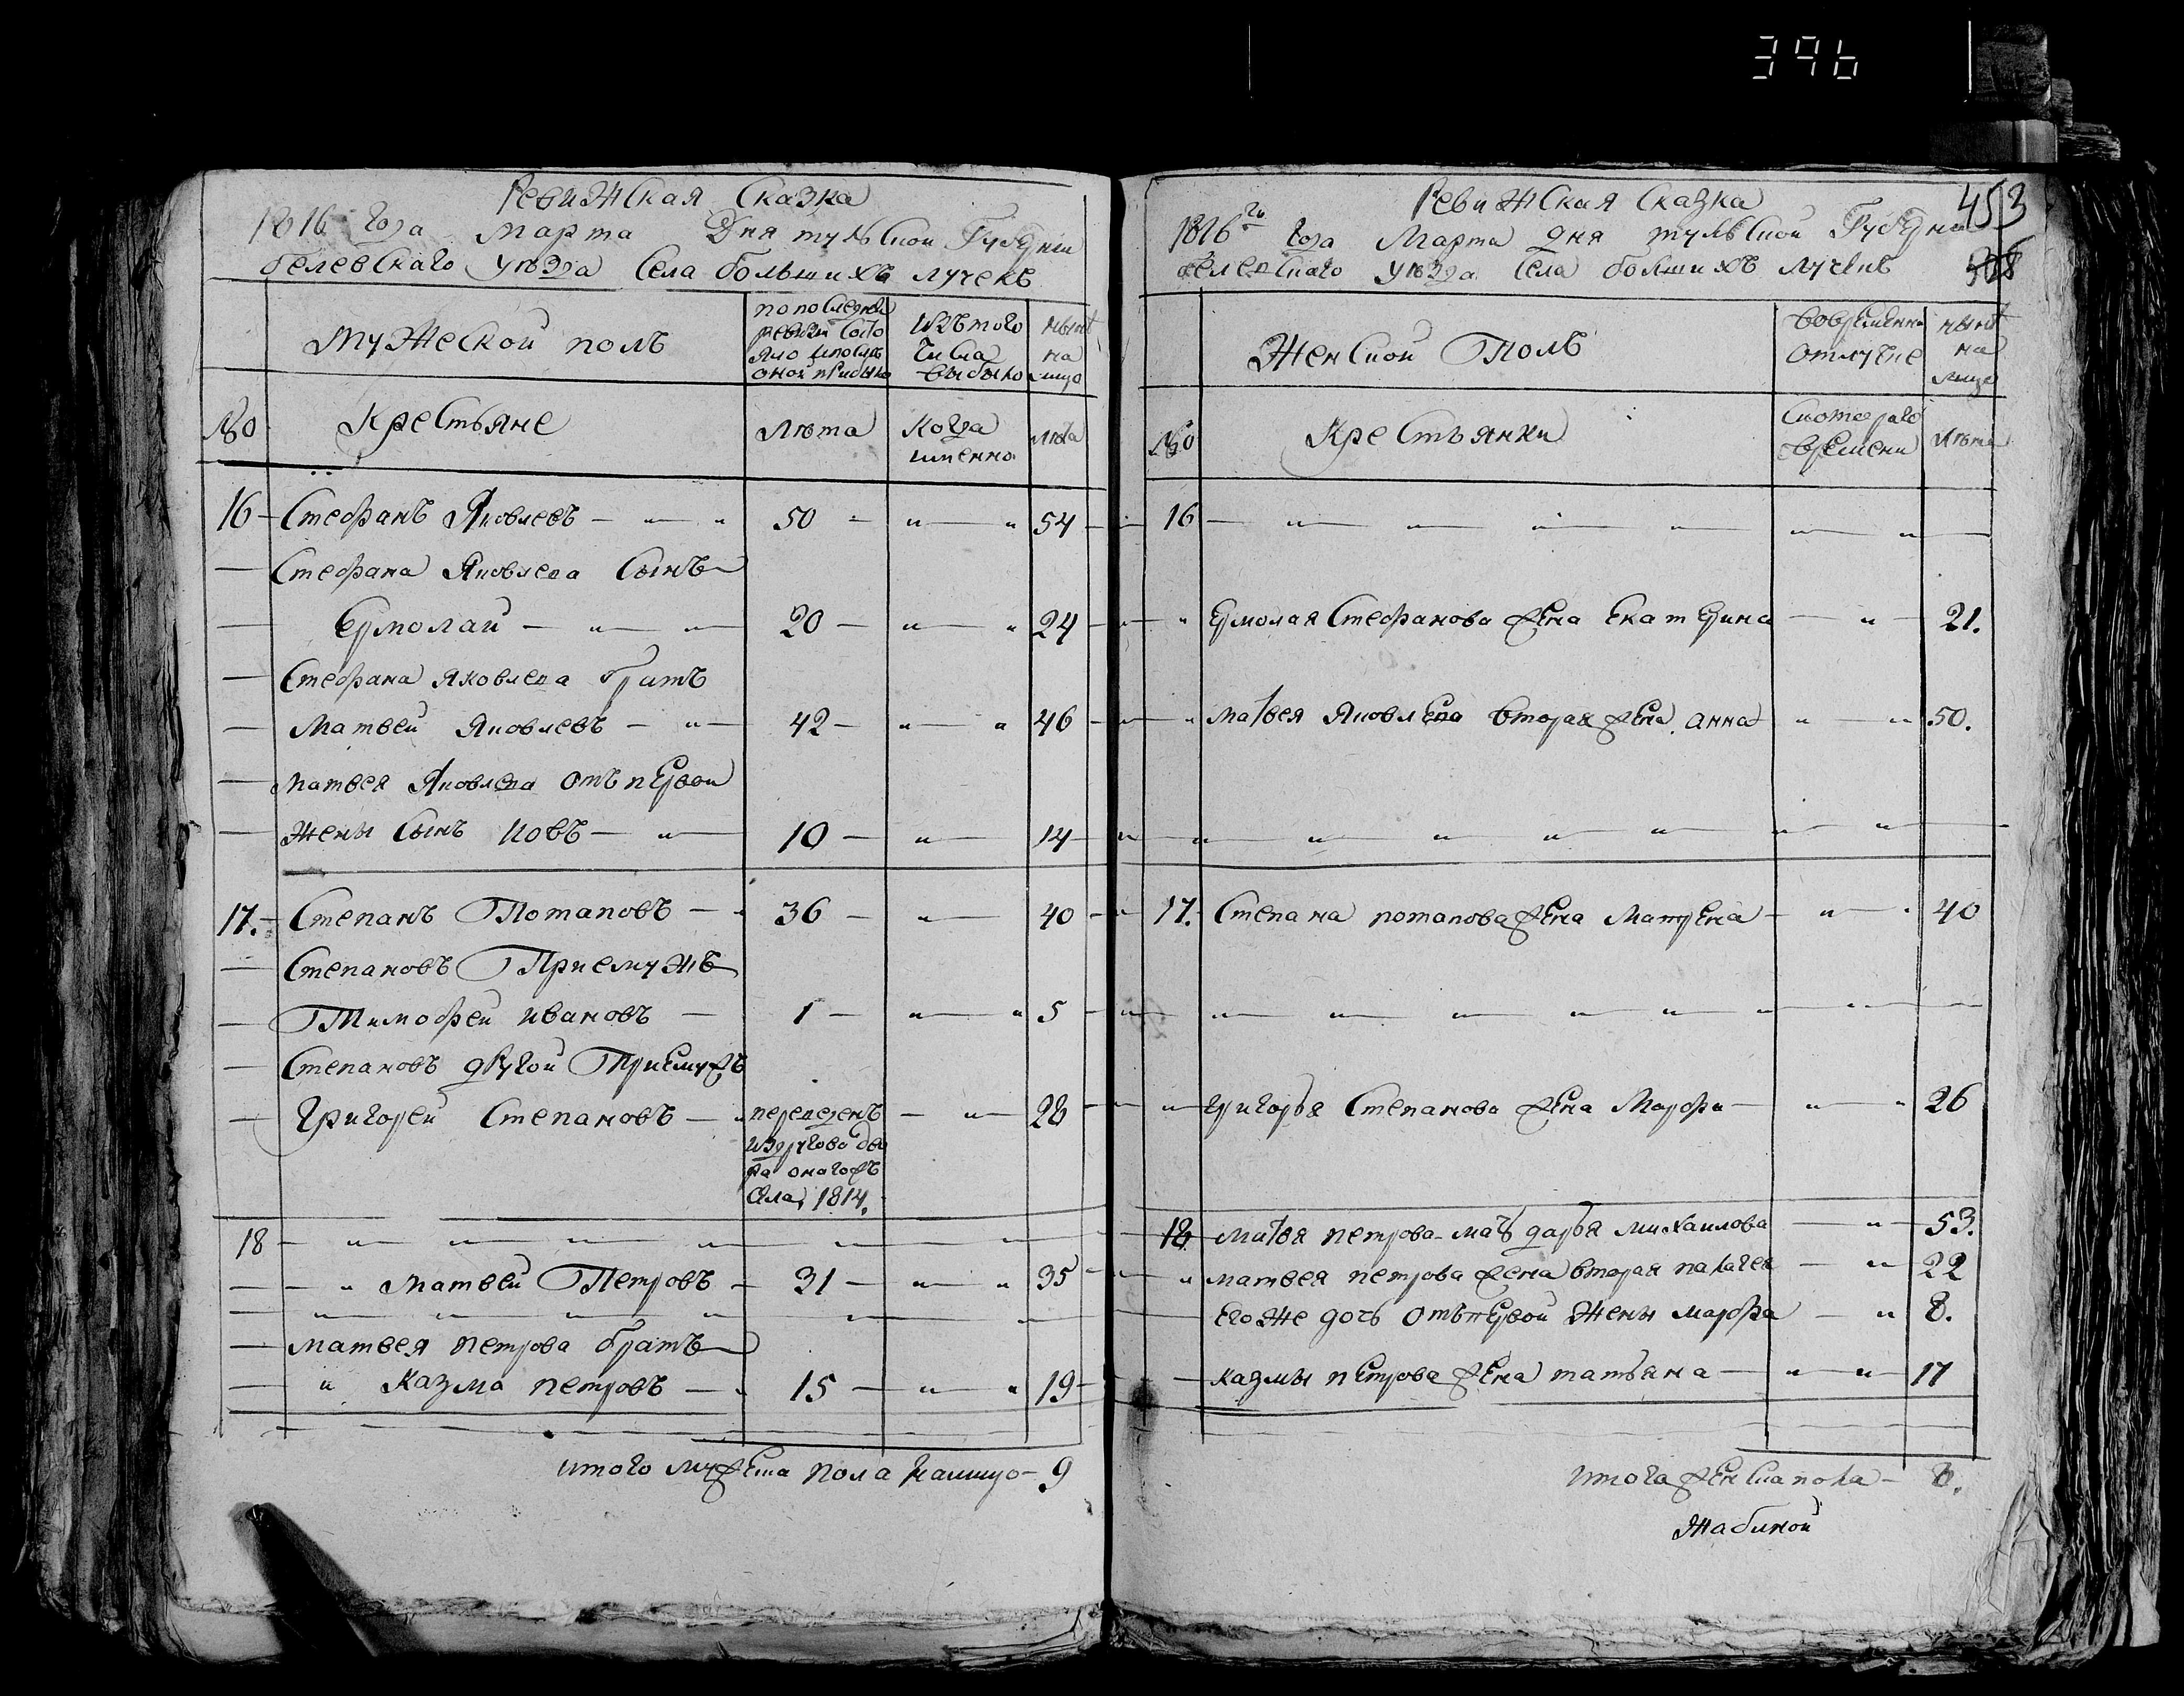 396
Ревижская Сказка
1816 года Марта Дня тульской Губерни
белевскаго уезда Села большихъ лучекъ
Мужеской полъ
по последней
ревизи состо
яло и после
оной прибыло
Изъ того
числа
выбыло
ныне
на
лицо
№
Крестьяне
Лета
Когда
именно
лета
16 Стефанъ Яковлевъ 50 54
Стефана Яковлева Сынъ
Ермолай 20 24
Стефана Яковлева братъ
Матвей Яковлевъ 42 46
Матвея Яковлева отъ первой
жены сынъ Иовъ 10 14
17. Степанъ Потаповъ 36 40
Степановъ Приемужъ
Тимофей ивановъ 1 5
Степановъ другой Приемужъ
Григорей Степановъ переведенъ 28
из другова дво
ра онагожъ
села, 1814.
18
Матвей Петровъ 31 35
Матвея петрова братъ
Казма петровъ 15 19
итого мужеска пола налицо 9
453
Ревижская Сказка
1816го года Марта дня тульской Губерни
белевскаго уезда села болшихъ лучекъ
Женской Полъ
во временной
отлучке
ныне
на
лицо
№
Крестьянки
Скоторого
времени
лета
16
Ермолая Стефанова жена Екатерина 21.
Матвея Яковлева вторая жена анна 50.
17. Степана потапова жена Матрена 40
Григорья Степанова жена Марфа 26
18 Матвея петрова мать дарья михаилова 53.
матвея петрова жена вторая палагея 22
его же дочь отъ первой жены марфа 8.
казмы петрова жена татьяна 17
итога женска пола 8.
Жабиной